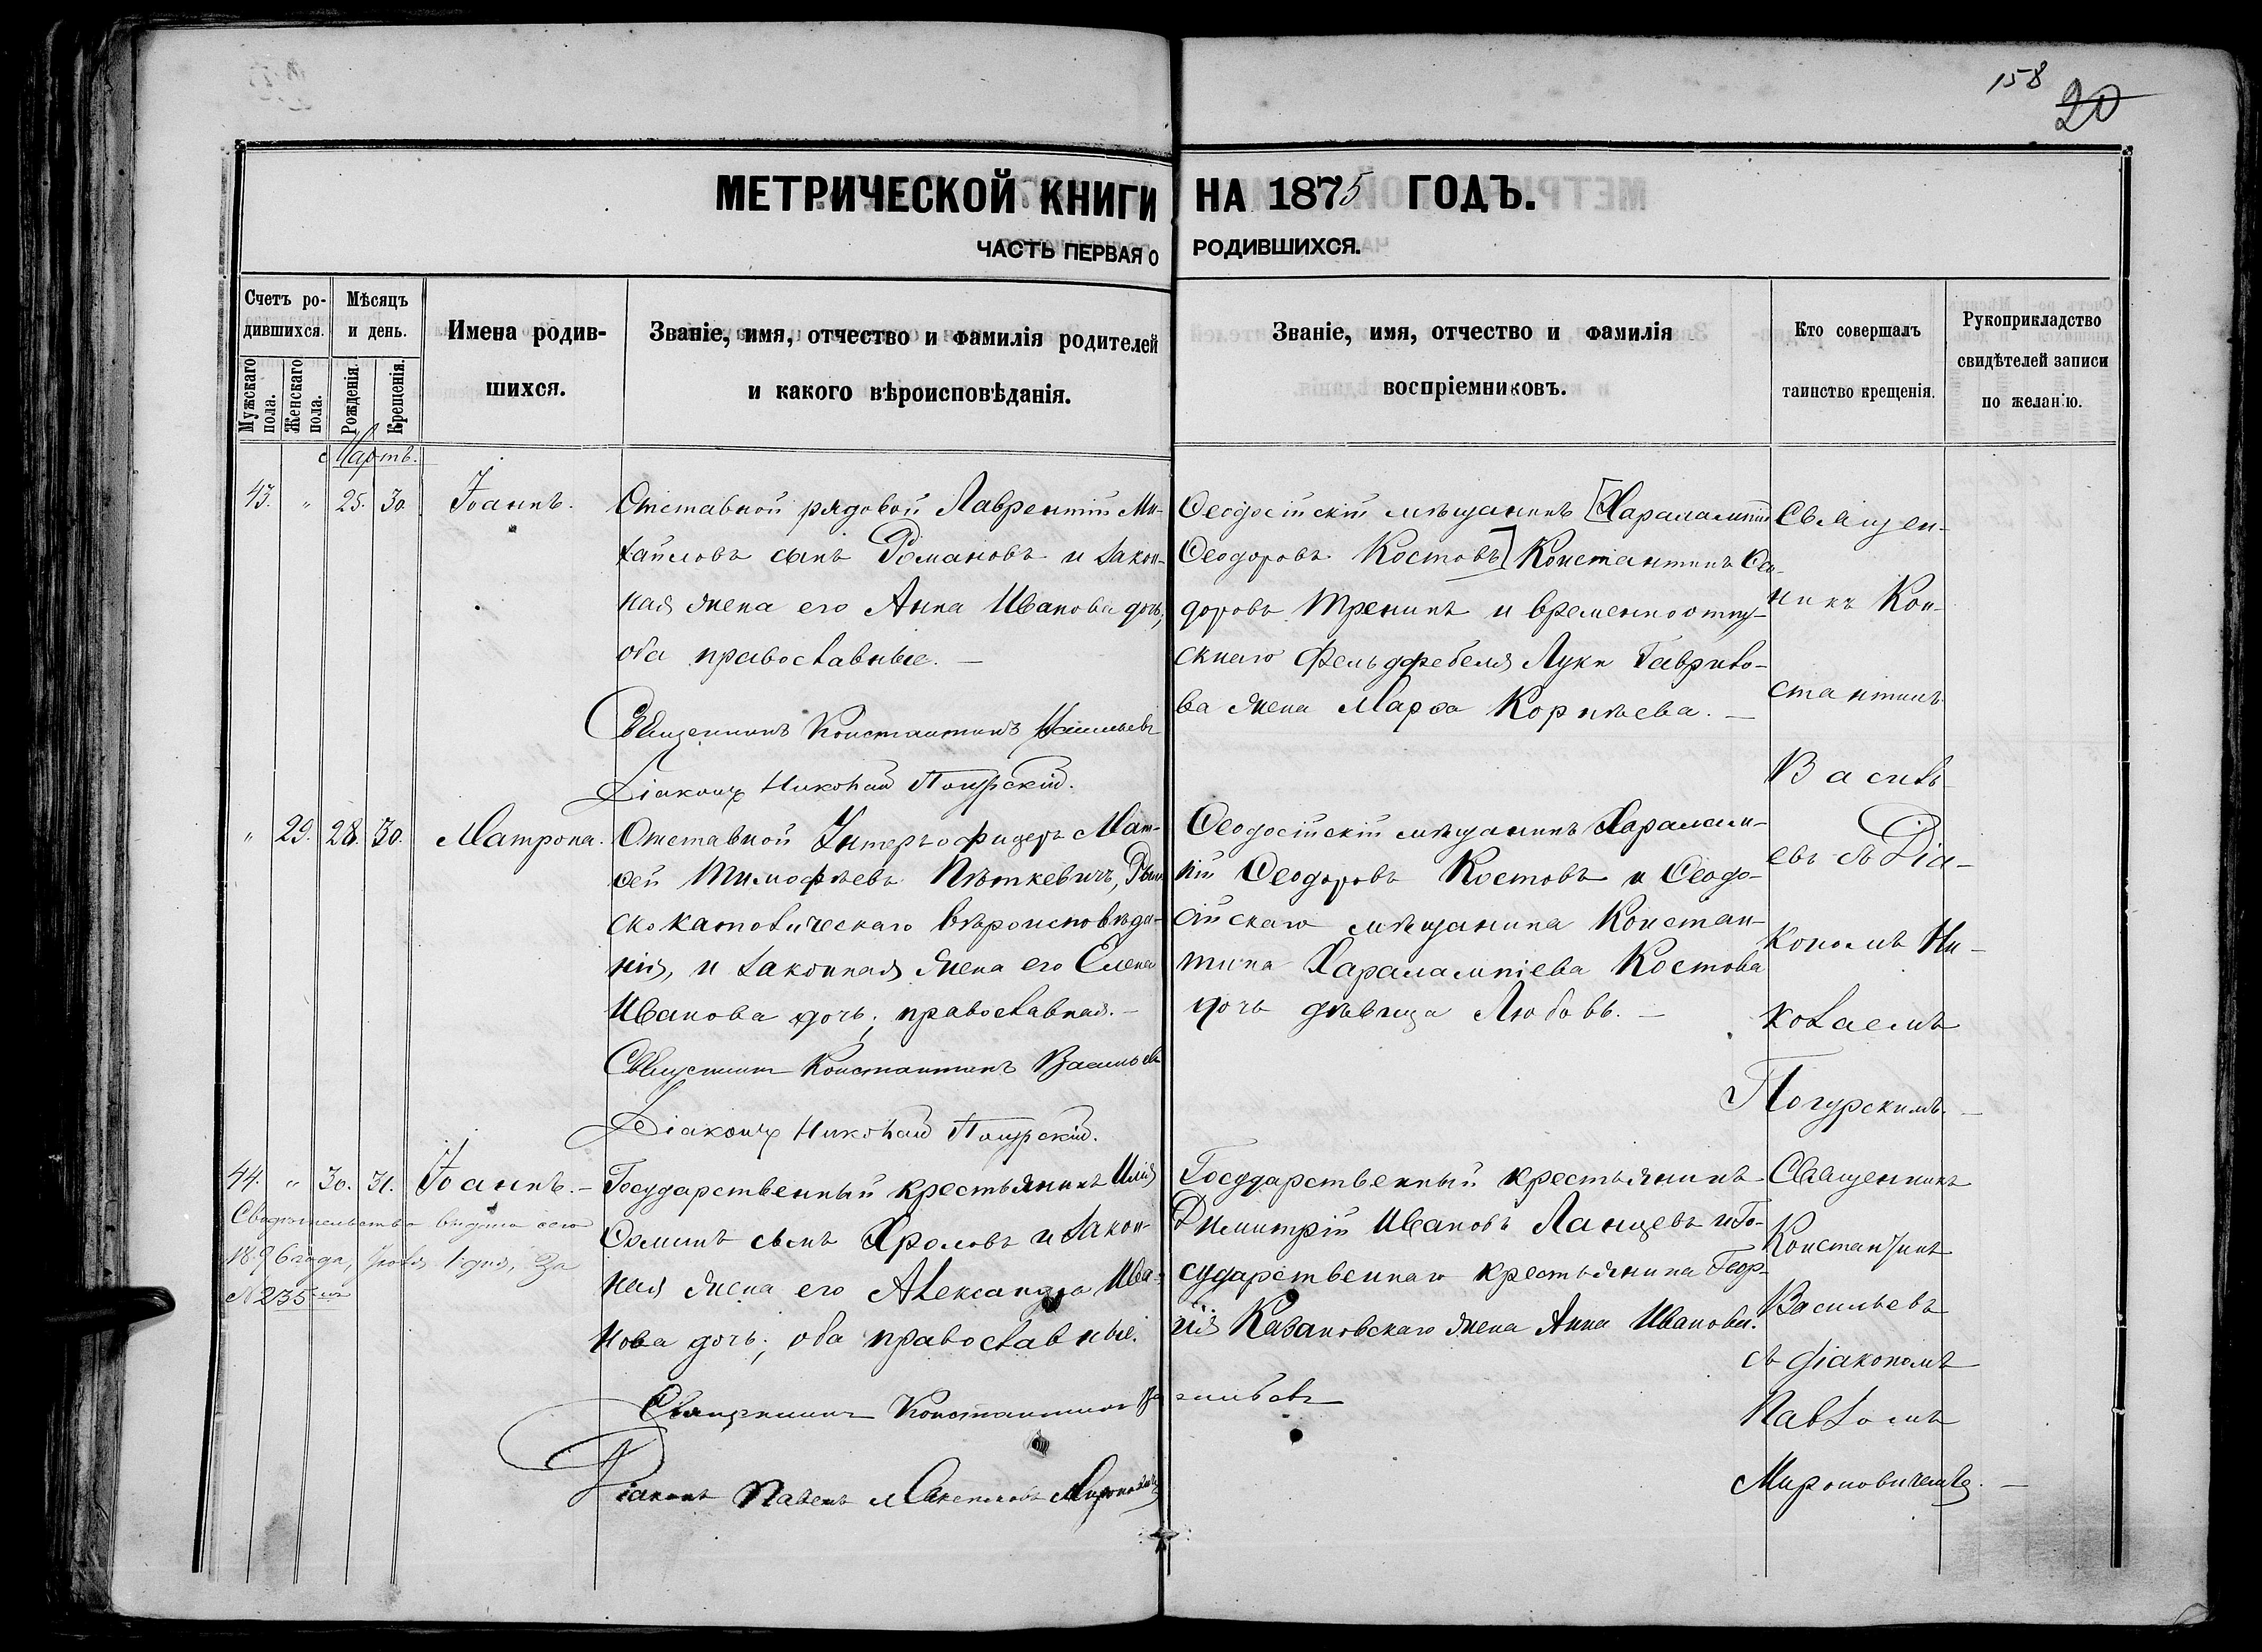 158
20
МЕТРИЧЕСКОЙ КНИГИ НА 1875 ГОДЪ.
ЧАСТЬ ПЕРВАЯ О РОДИВШИХСЯ.
Счетъ ро-
дившихся.
Мужскаго пола.
Женскаго пола.
Мѣсяцъ
и день.
Рожденія.
Крещенія.
Имена родив-
шихся.
Званіе, имя, отчество и фамилія родителей
и какого вѣроисповѣданія.
Званіе, имя, отчество и фамилія
воспріемниковъ.
Кто совершалъ
таинство крещенія.
Рукоприкладство
свидѣтелей записи
по желанію.
Мартъ.
43. " 25. 30. Іоаннъ.
Отставной рядовой Лаврентій Ми-
хайловъ сынъ Романовъ и закон-
ная жена его Анна Иванова дочь,
оба православные. —
Священникъ Константинъ Васильевъ
Діаконъ Николай Погурскій.
Ѳеодосійскій мѣщанинъ [Харалампій
Ѳеодоровъ Костовъ] Константинъ Ѳео-
доровъ Тренинъ и временноотпу-
скнаго Фельдфебеля Луки Гаврило-
ва жена Марѳа Корнѣева. —
Священ-
никъ Кон-
стантинъ
Василь-
евъ съ Діа-
кономъ Ни-
колаемъ
Погурскимъ. —
" 29. 28. 30. Матрона.
Отставной Унтеръофицеръ Мат-
ѳей Тимофѣевъ Пѣткевичъ, Рим
ско католическаго вѣроисповѣда-
нія, и законная жена его Елена
Иванова дочь, православная. —
Священникъ Константинъ Васильевъ
Діаконъ Николай Погурскій.
Ѳеодосійскій мѣщанинъ Харалам-
пій Ѳеодоровъ Костовъ и Ѳеодо-
сійскаго мѣщанина Констан-
тина Харалампіева Костова
дочь дѣвица Любовь. —
44. " 30. 31. Іоаннъ. —
Свидѣтельство выдано сего
1896 года, 1 дня, За
№ 235
Государственный крестьянинъ Илія
сынъ Хроловъ и закон-
ная жена его Александра Ива-
нова дочь, оба православные.
Священникъ Константинъ Васильевъ
Діаконъ Павелъ Мироновичъ
Государственный крестьянинъ
Димитрій Ивановъ Ланцевъ и Го-
сударственнаго крестьянина Геор-
гія Казановскаго жена Анна Иванова.
Священникъ
Константинъ
Васильевъ
съ діакономъ
Павломъ
Мироновичемъ. —